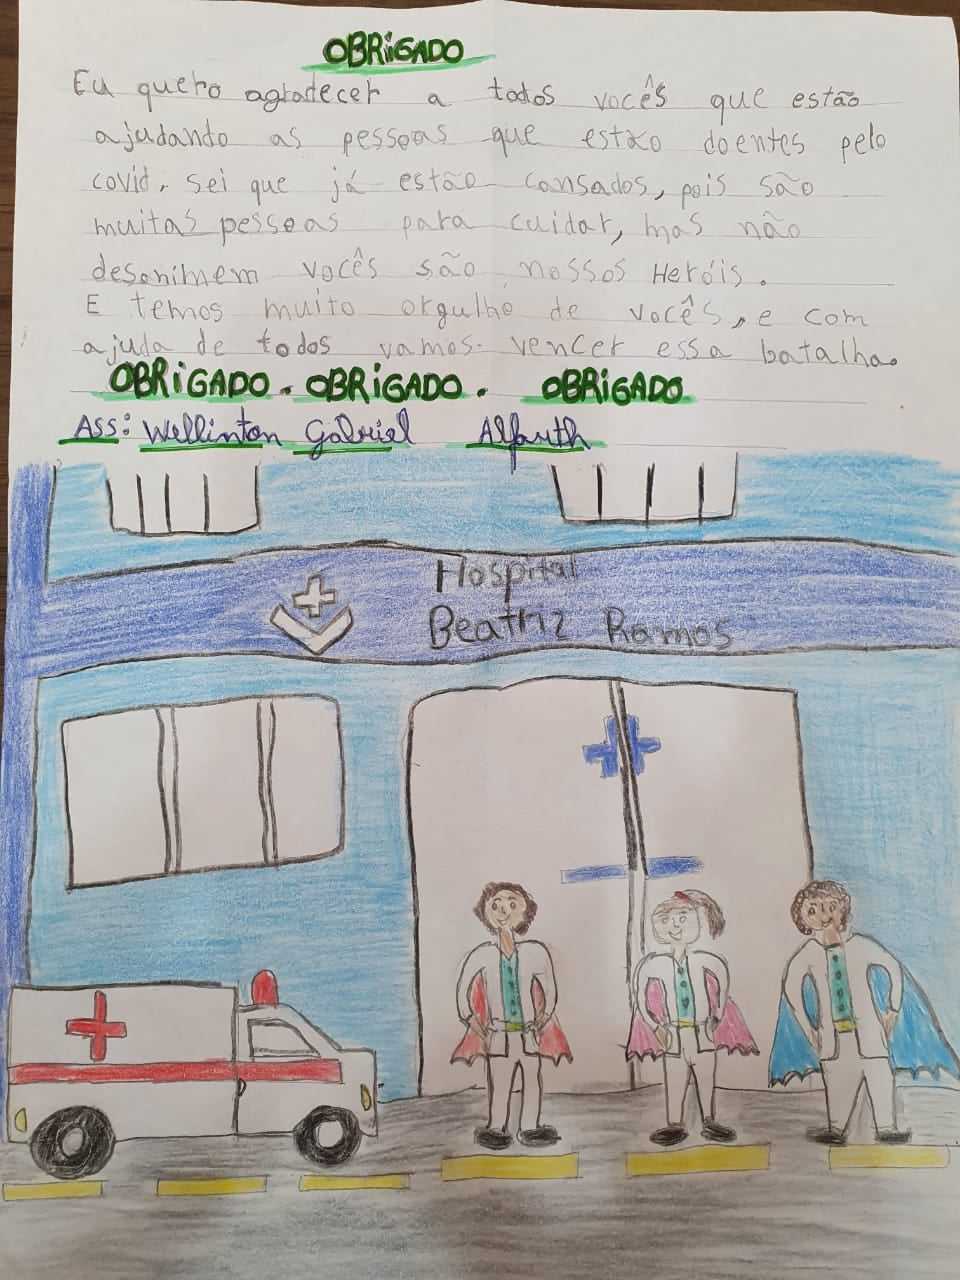 OBRIGADO
Eu quero agradecer a todos vocês que estão
ajudando as pessoas que estão doentes pelo
covid. sei que já estão cansados, pois são
muitas pessoas para cuidar, mas não
desanimem vocês são nossos Heróis.
E temos muito orgulho de vocês, e com
ajuda de todos vamos vencer essa batalha.
OBRIGADO. OBRIGADO. OBRIGADO
Ass: Wellinton Gabriel Alfauth
Hospital
Beatriz Ramos